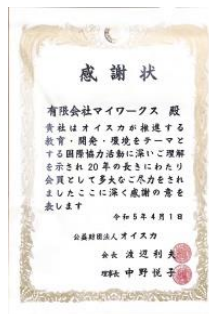 感謝状
有限会社マイワークス 殿
貴社はオイスカが推進する
教育・開発・環境をテーマと
する国際協力活動に深いご理解
を示され20年の長きにわたり
会員として多大なご尽力をされ
ましたここに深く感謝の意を
表します
令和5年4月1日
公益財団法人オイスカ
会長 渡辺利夫
理事長 中野悦子